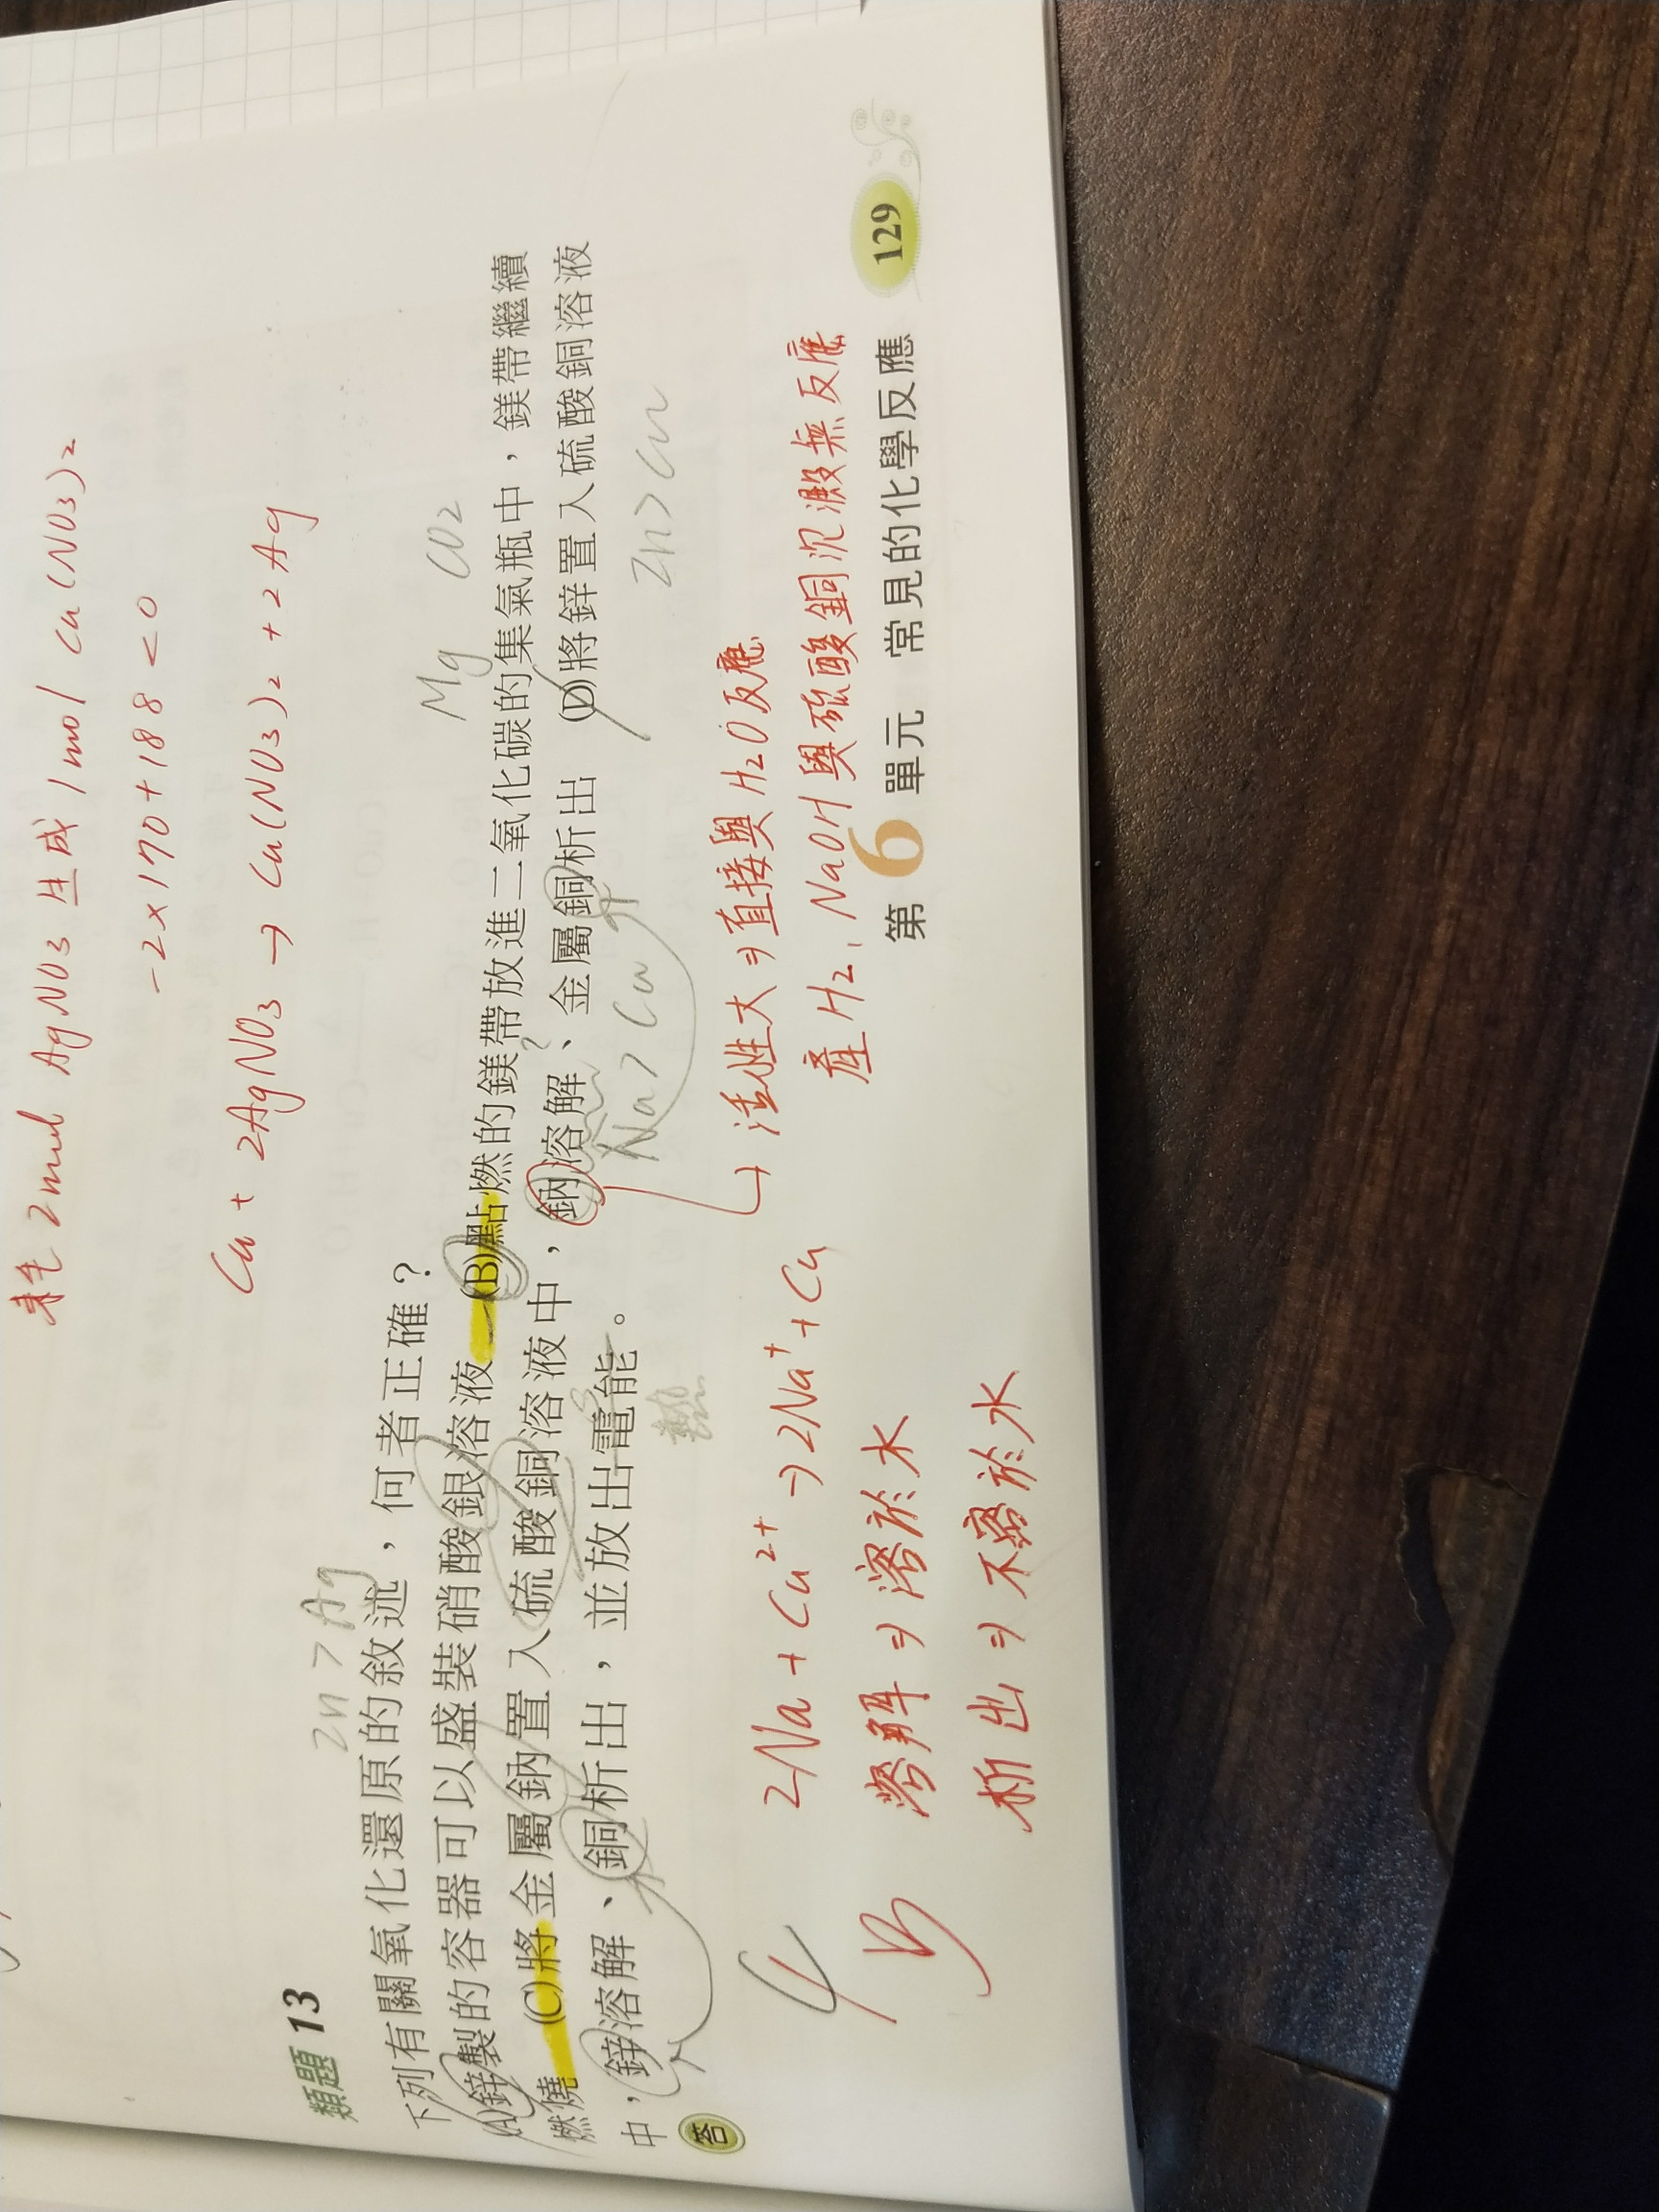 耗 2mol AgNO3 生成 1mol Cu(NO3)2
-2×170+188<0
Cu + 2AgNO3 → Cu(NO3)2 + 2Ag
類題 13
Zn > Ag
下列有關氧化還原的敘述，何者正確？
Mg CO2
(A)鋅製的容器可以盛裝硝酸銀溶液 (B)點燃的鎂帶放進二氧化碳的集氣瓶中，鎂帶繼續
燃燒 (C)將金屬鈉置入硫酸銅溶液中，鈉溶解、金屬銅析出 (D)將鋅置入硫酸銅溶液
中，鋅溶解、銅析出，並放出電能。
?
熱
Na > Cu
Zn > Cu
答
B
2Na + Cu2+ → 2Na+ + Cu
溶解 ⇒ 溶於水
析出 ⇒ 不溶於水
↳ 活性大 ⇒ 直接與 H2O 反應
產 H2, NaOH 與硫酸銅沉澱無反應
第 6 單元 常見的化學反應 129